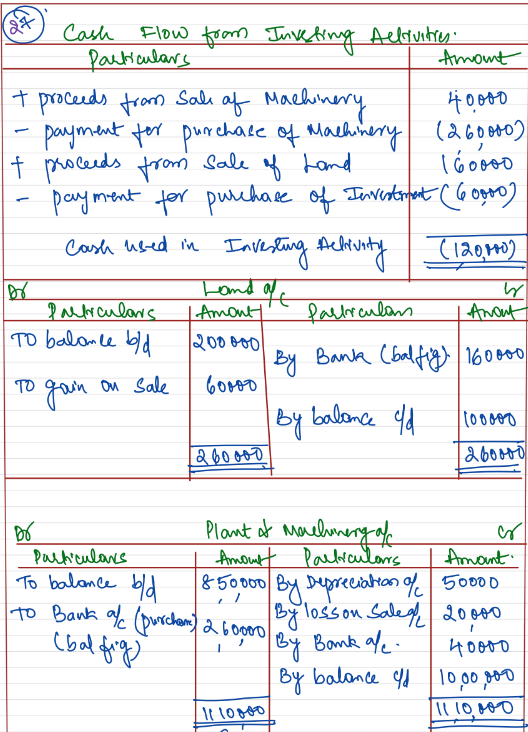 27
Cash Flow from Investing Activities.
Particulars Amount
+ proceeds from Sale of Machinery 40000
- payment for purchase of Machinery (260,000)
+ proceeds from Sale of Land 160000
- payment for purchase of Investment (60,000)
Cash used in Investing Activity (120,000)
Dr Land a/c Cr
Particulars Amount Particulars Amount
TO balance b/d 200000
By Bank (bal fig). 160000
TO gain on Sale 60000
By balance c/d 100000
260000 260000
Dr Plant & Machinery a/c Cr
Particulars Amount Particulars Amount.
To balance b/d 850000 By Depreciation a/c 50000
TO Bank a/c (purchase) 260000 By loss on Sale a/c 20,000
(bal fig) By Bank a/c. 40000
By balance c/d 10,00,000
1110000 11,10,000